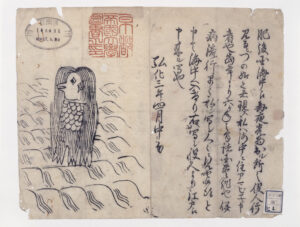 肥後国海中え毎夜光物出ル所之役人行
見るニづの如之者現ス私ハ海中ニ住アマビヱト申
者也当年より六ヶ年之間諸国豊作也併
病流行早々私シ写シ人々ニ見せ候得と
申て海中へ入けり右ハ写シ役人より江戸え
申来ル写也
弘化三年四月中旬